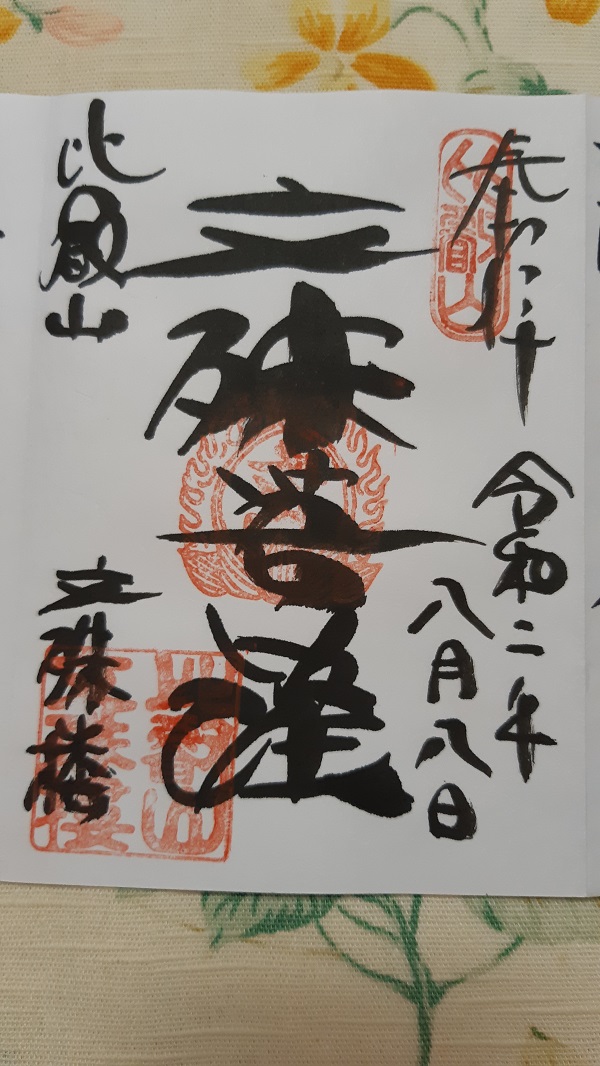 奉拝
令和二年
八月八日
文殊菩薩
比叡山
文殊楼